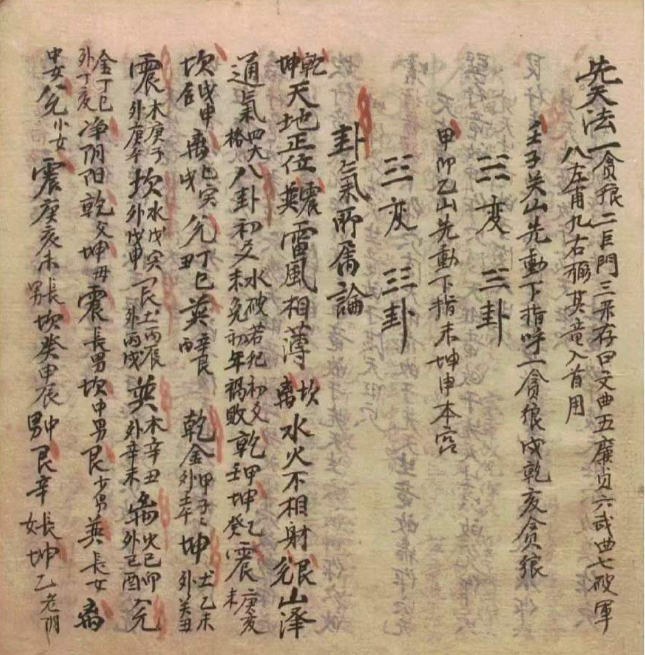 先天法一貪狼二巨門三禄存四文曲五廉貞六武曲七破軍
八左甫九右弼其竜入首用
壬子癸山先動下指呼一貪狼戌乾亥貪狼
三變三卦
甲卯乙山先動下指未坤申本宮
三變三卦
卦氣所属論
乾坤天地正位巽震雷風相薄坎离水火不相射兌艮山泽
通氣四大格八卦初爻水破若犯初爻未免初年禍敗乾壬甲坤乙癸震庚亥未
坎戊申离己寅兌丁巳丑巽辛艮丙乾金甲子外壬午坤土乙未外癸丑
震木庚子外庚午坎水戊寅外戊申艮土丙辰外丙戌巽木辛丑外辛未离火己卯外己酉兌
金丁巳外丁亥净阴阳乾父坤母震長男坎中男艮少男巽長女离
中女兌小女震庚亥未長男坎癸甲辰中男艮辛坤乙老阴